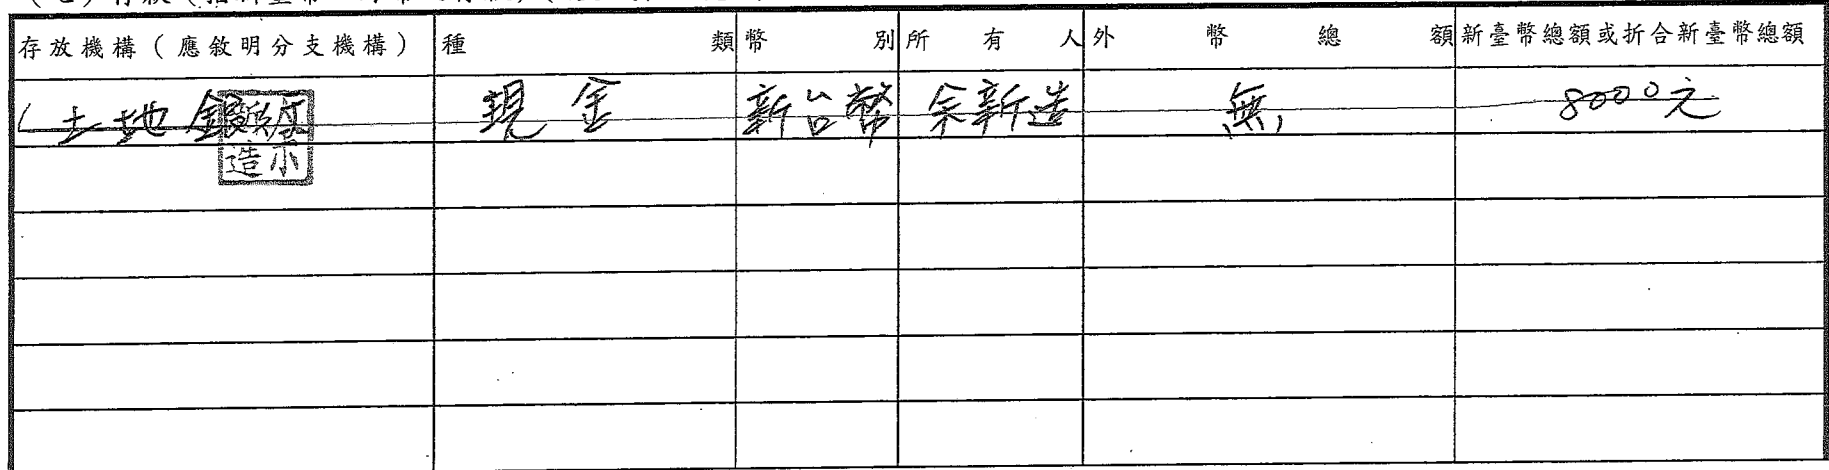 存放機構（應敘明分支機構） 種類 幣別 所有人 外幣總額 新臺幣總額或折合新臺幣總額
土地銀 現金 新台幣 余新造 無 8000元